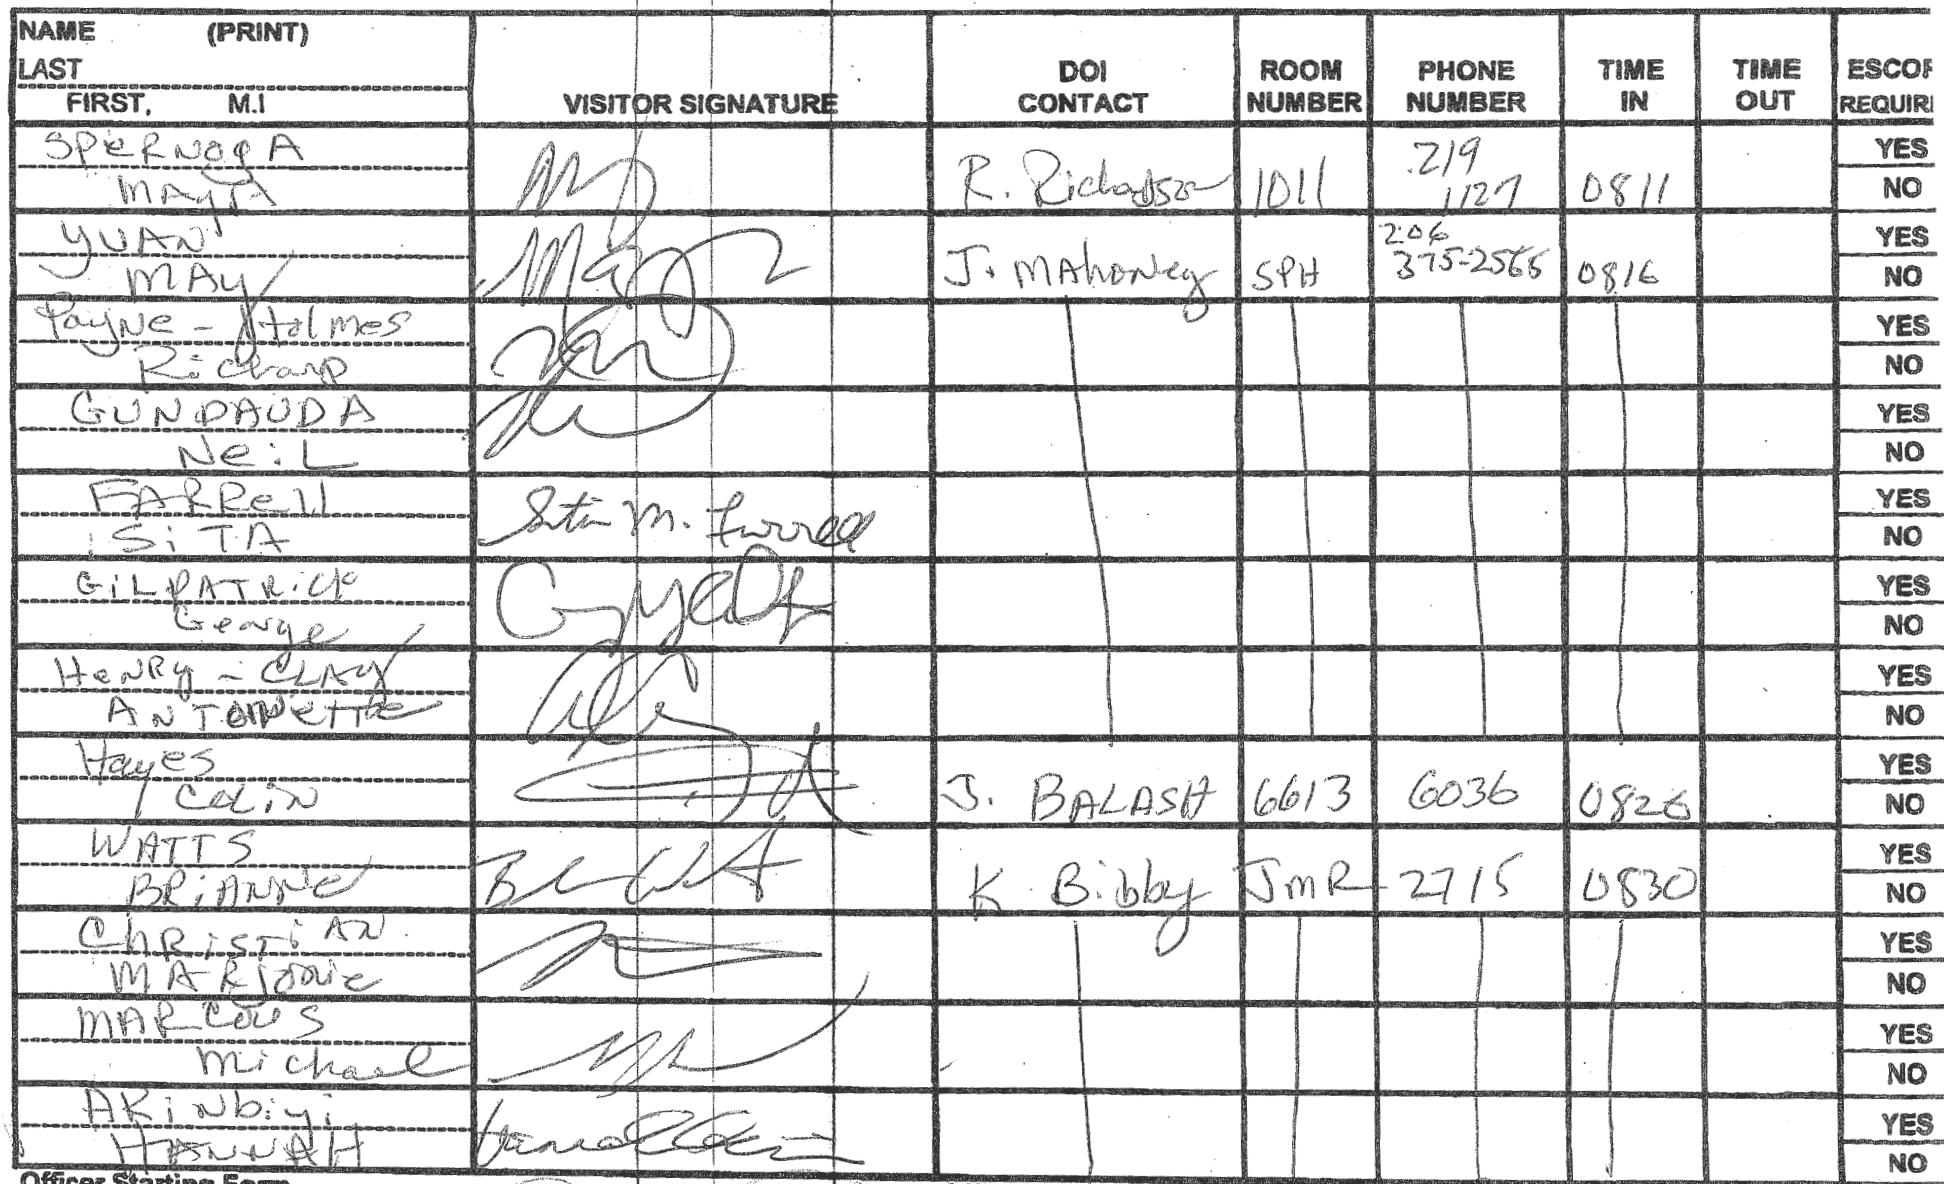 NAME (PRINT)
LAST
FIRST, M.I
VISITOR SIGNATURE
DOI CONTACT
ROOM NUMBER
PHONE NUMBER
TIME IN
TIME OUT
ESCOR
REQUIRI
SPERNOGA
MAYTA
R. Richardson 1011 219 1127 0811
YES
NO
YUAN
MAY
J. MAHONEY SPH 206 375-2565 0816
YES
NO
Payne - Holmes
Richard
YES
NO
GUNDAUDA
NeiL
YES
NO
FARRell
SiTA
Sita M. Farrell
YES
NO
GiLPATRick
George
YES
NO
HeNRy - CLAy
ANTOINETTe
YES
NO
Hayes
COLiN
J. BALASH 6613 6036 0826
YES
NO
WATTS
BRiANNe
K Bibby JMR 2715 0830
YES
NO
ChRiSTiAN
MARJORie
YES
NO
MARCOUS
Michael
YES
NO
AKiNbiyi
HANNAH
YES
NO
Officer Starting Form